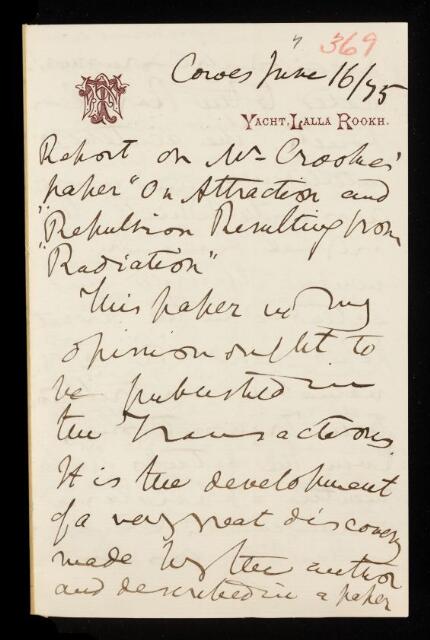 369
Cowes June 16/75
YACHT, LALLA ROOKH.
Report on Mr Crookes'
paper "On Attraction and
"Repulsion Resulting from
Radiation"
This paper in my
opinion ought to
be published in
the Transactions.
It is the development
of a very great discovery
made by the author
and described in a paper